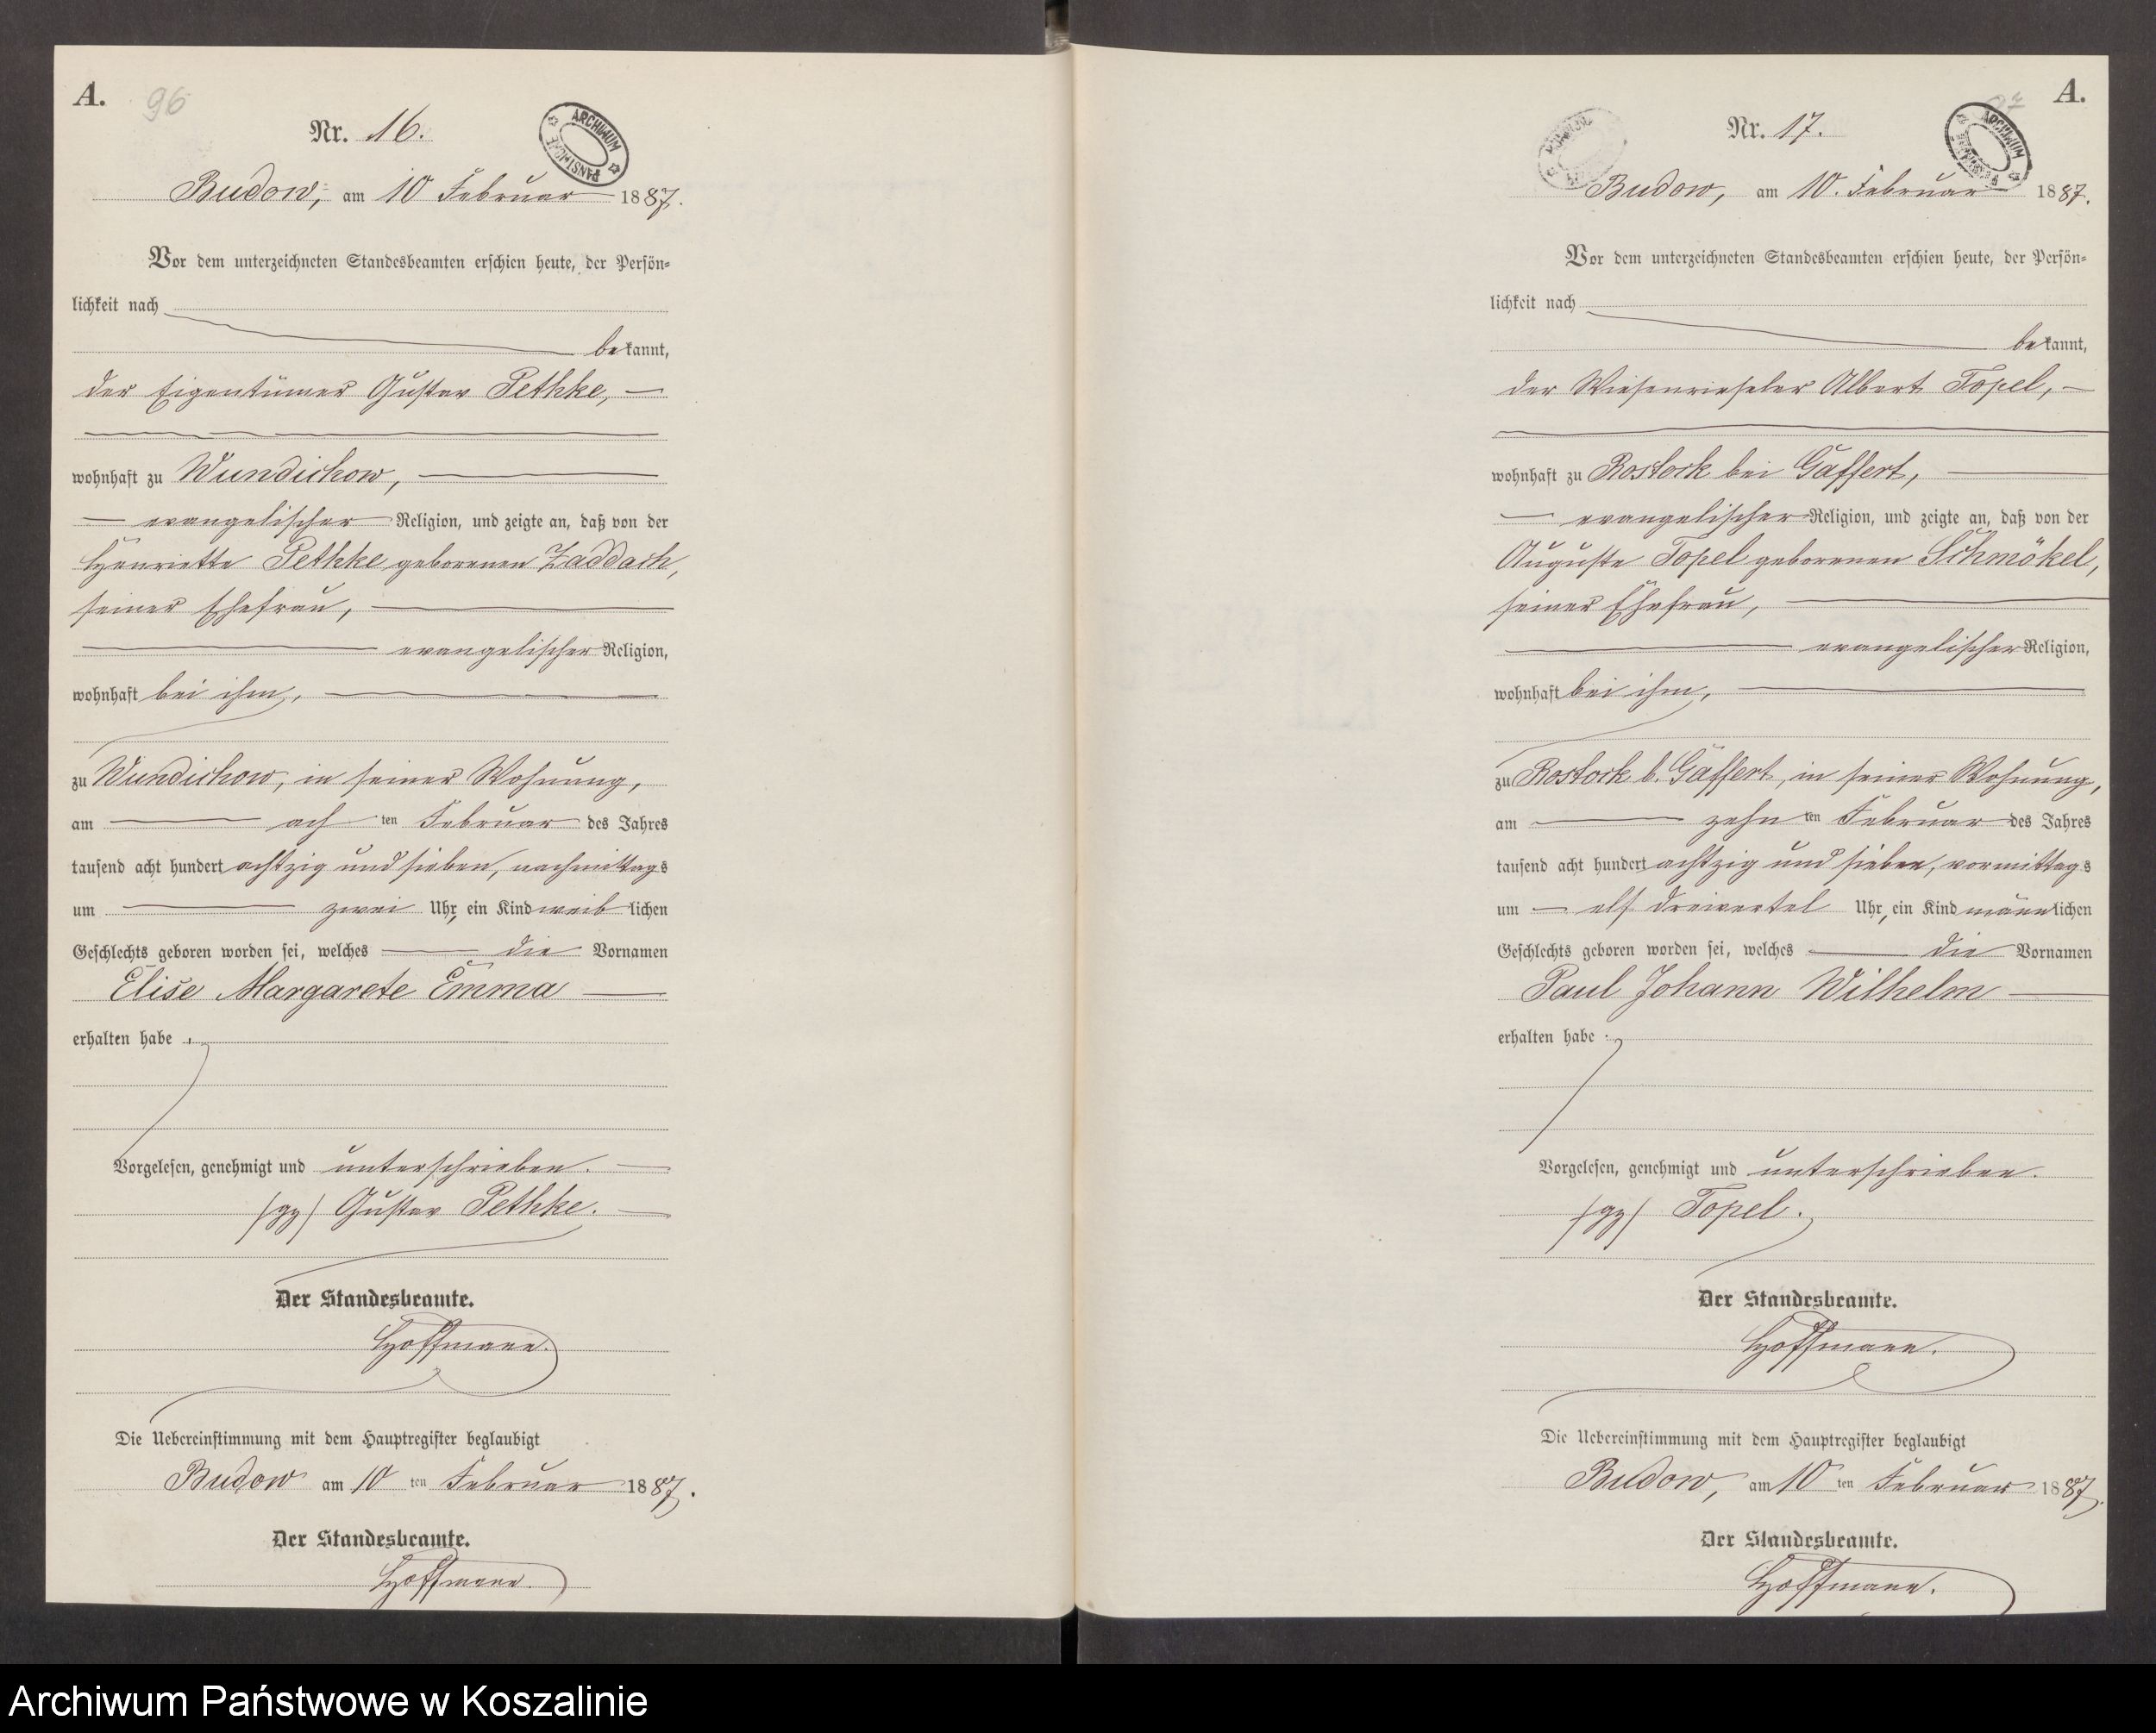 A. 96
Nr. 16.
ARCHIWUM PAŃSTWOWE
Budow, am 10 Februar 1887.
Vor dem unterzeichneten Standesbeamten erschien heute, der Persön-
lichkeit nach
bekannt,
der Eigentümer Gustav Pethke,
wohnhaft zu Wundichow,
evangelischer Religion, und zeigte an, daß von der
Henriette Pethke geborenen Zaddach,
seiner Ehefrau,
evangelischer Religion,
wohnhaft bei ihm,
zu Wundichow, in seiner Wohnung,
am ach ten Februar des Jahres
tausend acht hundert achtzig und sieben, nachmittags
um zwei Uhr, ein Kind weiblichen
Geschlechts geboren worden sei, welches die Vornamen
Elise Margarete Emma
erhalten habe.
Vorgelesen, genehmigt und unterschrieben.
(gz) Gustav Pethke.
Der Standesbeamte.
Hoffmann.
Die Uebereinstimmung mit dem Hauptregister beglaubigt
Budow am 10 ten Februar 1887.
Der Standesbeamte.
Hoffmann.
A.
Nr. 17.
ARCHIWUM
Budow, am 10. Februar 1887.
Vor dem unterzeichneten Standesbeamten erschien heute, der Persön-
lichkeit nach
bekannt,
der Wiesenrieseler Albert Topel,
wohnhaft zu Rostock bei Gaffert,
evangelischer Religion, und zeigte an, daß von der
Auguste Topel geborenen Schmökel,
seiner Ehefrau,
evangelischer Religion,
wohnhaft bei ihm,
zu Rostock b. Gaffert, in seiner Wohnung,
am zehn ten Februar des Jahres
tausend acht hundert achtzig und sieben, vormittags
um elf dreivertel Uhr, ein Kind männlichen
Geschlechts geboren worden sei, welches die Vornamen
Paul Johann Wilhelm
erhalten habe.
Vorgelesen, genehmigt und unterschrieben.
(gz) Topel.
Der Standesbeamte.
Hoffmann.
Die Uebereinstimmung mit dem Hauptregister beglaubigt
Budow, am 10 ten Februar 1887.
Der Standesbeamte.
Hoffmann.
Archiwum Państwowe w Koszalinie